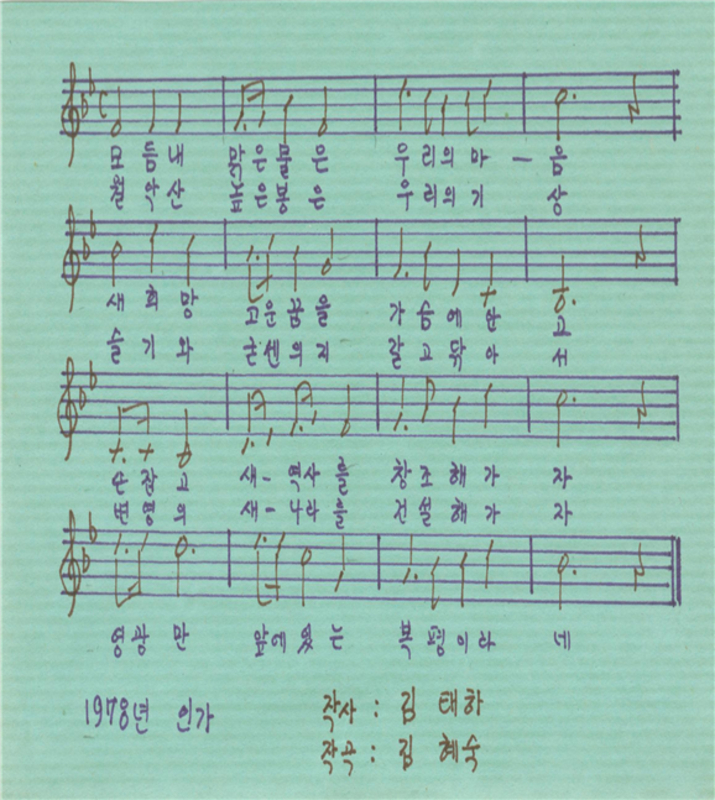 모 듬 내 맑은 물 은 우 리 의 마 - 음
월 악 산 높은 봉 은 우 리 의 기 상
새 희 망 고 운 꿈 을 가 슴 에 안 고
슬 기 와 굳 센 의 지 갈 고 닦 아 서
손 잡 고 새 - 역사 를 창 조 해 가 자
번 영 의 새 - 나라 를 건 설 해 가 자
영 광 만 앞에 있 는 복 평 이 라 네
1978년 인가
작사 : 김 태하
작곡 : 김 혜숙